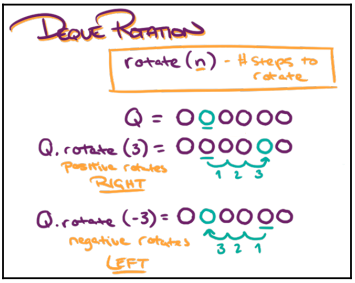 DEQUE ROTATION
rotate(n) - # steps to
rotate
Q =
Q.rotate(3) =
positive rotates
RIGHT
1 2 3
Q.rotate(-3) =
negative rotates
LEFT
3 2 1